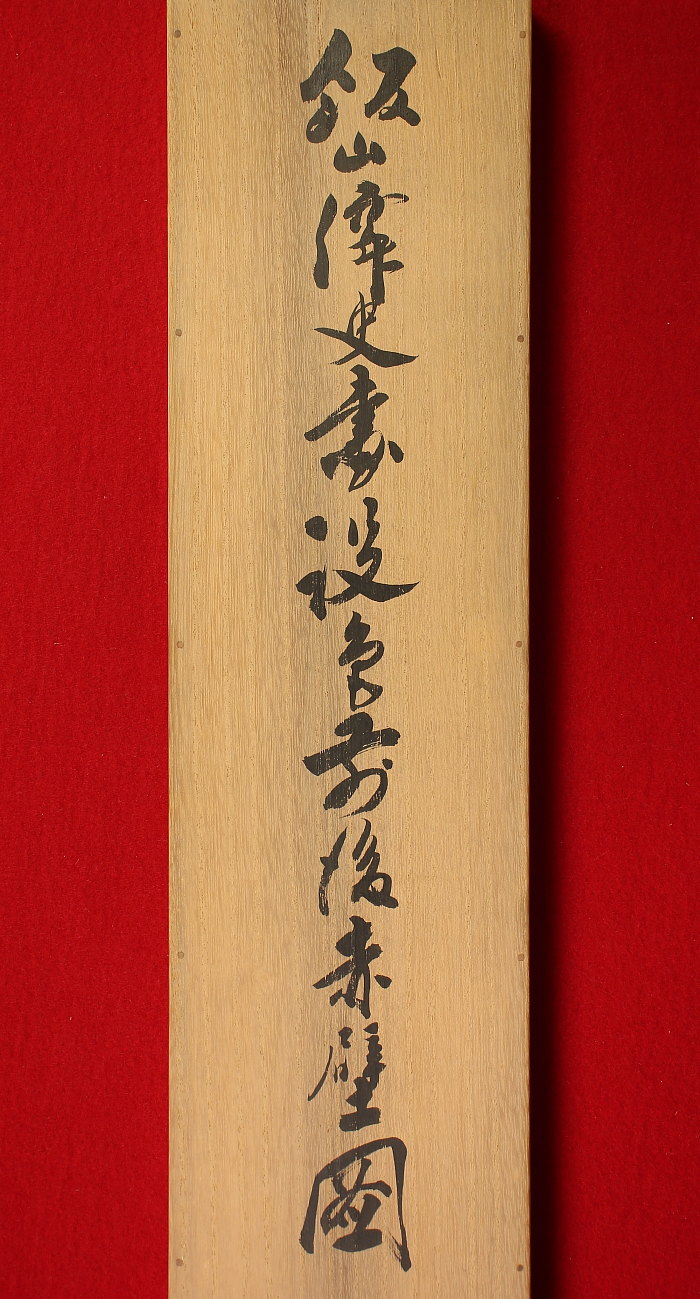 飯山偉史畫設色前後赤壁圖